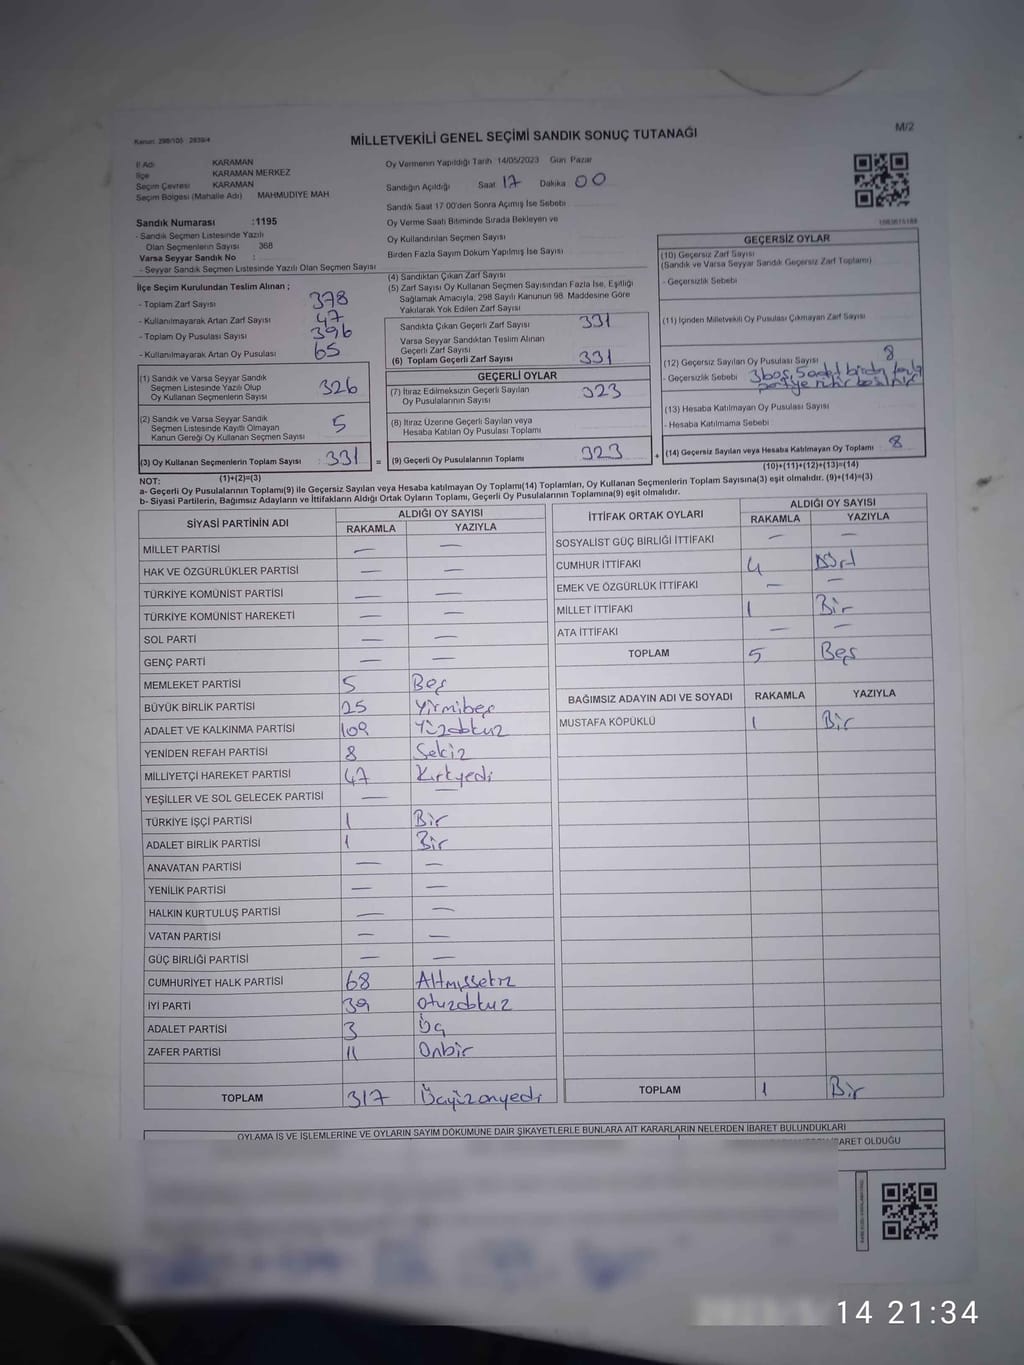 Kanun: 298/105 2839/4
MİLLETVEKİLİ GENEL SEÇİMİ SANDIK SONUÇ TUTANAĞI
M/2
İl Adı KARAMAN
İlçe KARAMAN MERKEZ
Seçim Çevresi KARAMAN
Seçim Bölgesi (Mahalle Adı) MAHMUDİYE MAH.
Oy Vermenin Yapıldığı Tarih 14/05/2023 Gün Pazar
Sandığın Açıldığı Saat 17 Dakika 00
Sandık Saat 17.00'den Sonra Açılmış İse Sebebi
Oy Verme Saati Bitiminde Sırada Bekleyen ve
Oy Kullandırılan Seçmen Sayısı
Birden Fazla Sayım Döküm Yapılmış İse Sayısı
Sandık Numarası :1195
- Sandık Seçmen Listesinde Yazılı
Olan Seçmenlerin Sayısı 368
Varsa Seyyar Sandık No :
- Seyyar Sandık Seçmen Listesinde Yazılı Olan Seçmen Sayısı
İlçe Seçim Kurulundan Teslim Alınan ;
- Toplam Zarf Sayısı 378
- Kullanılmayarak Artan Zarf Sayısı 47
- Toplam Oy Pusulası Sayısı 396
- Kullanılmayarak Artan Oy Pusulası 65
(1) Sandık ve Varsa Seyyar Sandık
Seçmen Listesinde Yazılı Olup
Oy Kullanan Seçmenlerin Sayısı 326
(2) Sandık ve Varsa Seyyar Sandık
Seçmen Listesinde Kayıtlı Olmayan
Kanun Gereği Oy Kullanan Seçmen Sayısı 5
(3) Oy Kullanan Seçmenlerin Toplam Sayısı : 331
(4) Sandıktan Çıkan Zarf Sayısı
(5) Zarf Sayısı Oy Kullanan Seçmen Sayısından Fazla İse, Eşitliği
Sağlamak Amacıyla, 298 Sayılı Kanunun 98. Maddesine Göre
Yakılarak Yok Edilen Zarf Sayısı
Sandıkta Çıkan Geçerli Zarf Sayısı 331
Varsa Seyyar Sandıktan Teslim Alınan
Geçerli Zarf Sayısı
(6) Toplam Geçerli Zarf Sayısı 331
GEÇERLİ OYLAR
(7) İtiraz Edilmeksizin Geçerli Sayılan
Oy Pusulalarının Sayısı 323
(8) İtiraz Üzerine Geçerli Sayılan veya
Hesaba Katılan Oy Pusulası Toplamı
= (9) Geçerli Oy Pusulalarının Toplamı 323
GEÇERSİZ OYLAR
(10) Geçersiz Zarf Sayısı
(Sandık ve Varsa Seyyar Sandık Geçersiz Zarf Toplamı)
- Geçersizlik Sebebi
(11) İçinden Milletvekili Oy Pusulası Çıkmayan Zarf Sayısı
(12) Geçersiz Sayılan Oy Pusulası Sayısı 8
- Geçersizlik Sebebi 3 boş, 5 adet birden fazla
partiye mühür
(13) Hesaba Katılmayan Oy Pusulası Sayısı
- Hesaba Katılmama Sebebi
+ (14) Geçersiz Sayılan veya Hesaba Katılmayan Oy Toplamı 8
NOT: (1)+(2)=(3)
(10)+(11)+(12)+(13)=(14)
a- Geçerli Oy Pusulalarının Toplamı(9) ile Geçersiz Sayılan veya Hesaba Katılmayan Oy Toplamı(14) Toplamları, Oy Kullanan Seçmenlerin Toplam Sayısına(3) eşit olmalıdır. (9)+(14)=(3)
b- Siyasi Partilerin, Bağımsız Adayların ve İttifakların Aldığı Ortak Oyların Toplamı, Geçerli Oy Pusulalarının Toplamına(9) eşit olmalıdır.
SİYASİ PARTİNİN ADI ALDIĞI OY SAYISI
RAKAMLA YAZIYLA
MİLLET PARTİSİ — —
HAK VE ÖZGÜRLÜKLER PARTİSİ — —
TÜRKİYE KOMÜNİST PARTİSİ — —
TÜRKİYE KOMÜNİST HAREKETİ — —
SOL PARTİ — —
GENÇ PARTİ — —
MEMLEKET PARTİSİ 5 Beş
BÜYÜK BİRLİK PARTİSİ 25 Yirmibeş
ADALET VE KALKINMA PARTİSİ 109 Yüzdokuz
YENİDEN REFAH PARTİSİ 8 Sekiz
MİLLİYETÇİ HAREKET PARTİSİ 47 Kırkyedi
YEŞİLLER VE SOL GELECEK PARTİSİ — —
TÜRKİYE İŞÇİ PARTİSİ 1 Bir
ADALET BİRLİK PARTİSİ 1 Bir
ANAVATAN PARTİSİ — —
YENİLİK PARTİSİ — —
HALKIN KURTULUŞ PARTİSİ — —
VATAN PARTİSİ — —
GÜÇ BİRLİĞİ PARTİSİ — —
CUMHURİYET HALK PARTİSİ 68 Altmışsekiz
İYİ PARTİ 39 Otuzdokuz
ADALET PARTİSİ 3 Üç
ZAFER PARTİSİ 11 Onbir
TOPLAM 317 Üçyüzonyedi
İTTİFAK ORTAK OYLARI ALDIĞI OY SAYISI
RAKAMLA YAZIYLA
SOSYALİST GÜÇ BİRLİĞİ İTTİFAKI — —
CUMHUR İTTİFAKI 4 Dört
EMEK VE ÖZGÜRLÜK İTTİFAKI — —
MİLLET İTTİFAKI 1 Bir
ATA İTTİFAKI — —
TOPLAM 5 Beş
BAĞIMSIZ ADAYIN ADI VE SOYADI RAKAMLA YAZIYLA
MUSTAFA KÖPÜKLÜ 1 Bir
TOPLAM 1 Bir
OYLAMA İŞ VE İŞLEMLERİNE VE OYLARIN SAYIM DÖKÜMÜNE DAİR ŞİKAYETLERLE BUNLARA AİT KARARLARIN NELERDEN İBARET BULUNDUKLARI
OLDUĞU
14 21:34